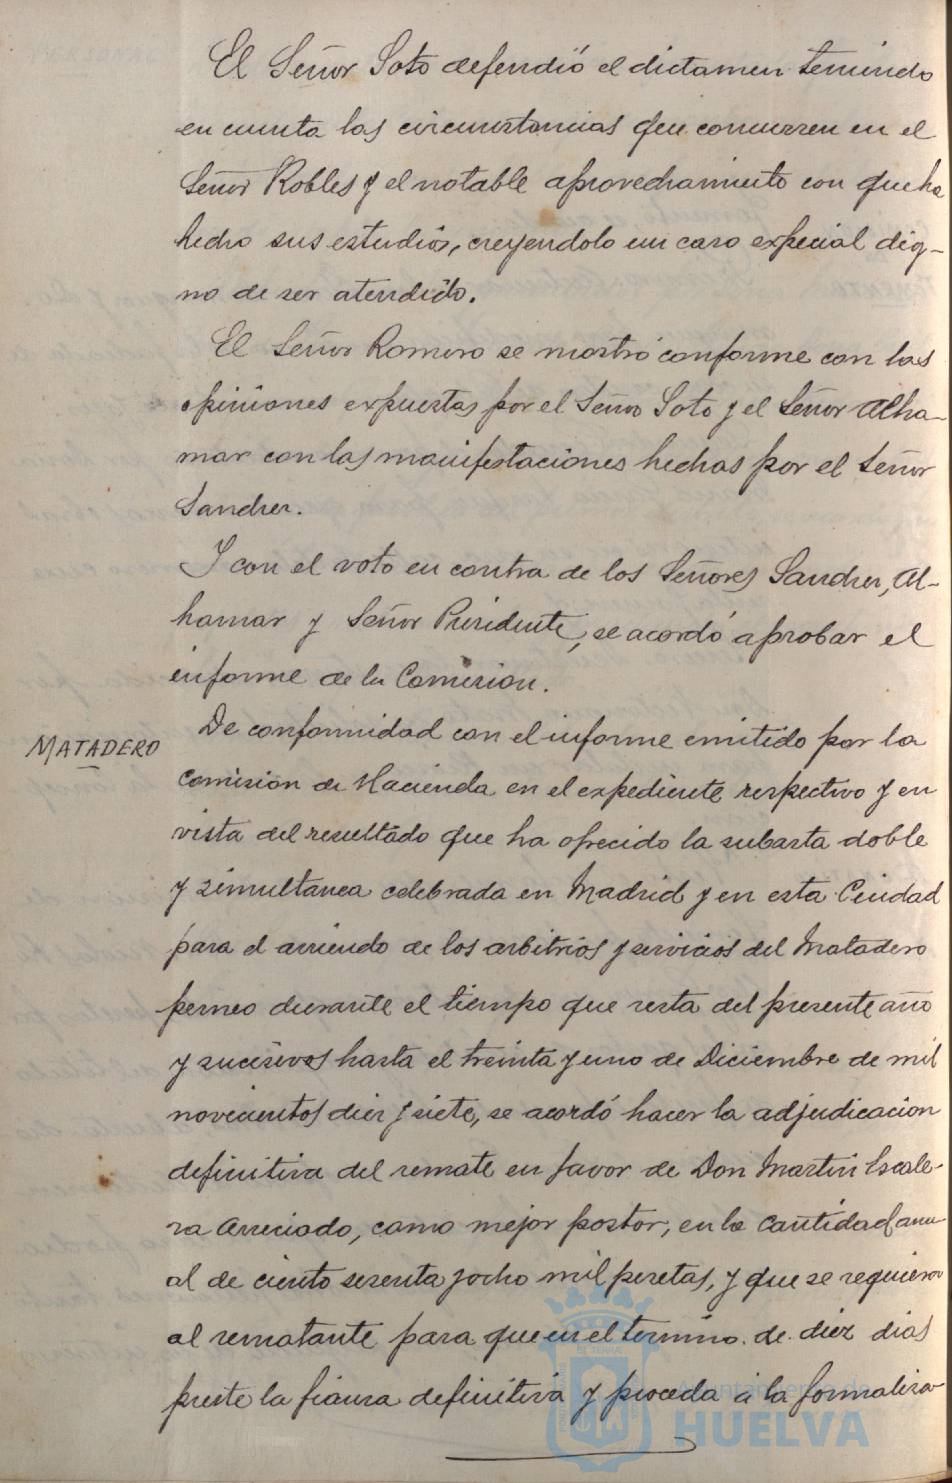 El Señor Soto defendió el dictamen teniendo
en cuenta las circunstancias que concurren en el
Señor Robles y el notable aprovechamiento con que ha
hecho sus estudios, creyendolo un caso especial dig-
no de ser atendido.
El Señor Romero se mostró conforme con las
opiniones expuestas por el Señor Soto y el Señor Alha-
mar con las manifestaciones hechas por el Señor
Sanchez.
Y con el voto en contra de los Señores Sanchez, Al-
hamar y Señor Presidente, se acordó aprobar el
informe de la Comision.
MATADERO
De conformidad con el informe emitido por la
Comision de Hacienda en el expediente respectivo y en
vista del resultado que ha ofrecido la subasta doble
y simultanea celebrada en Madrid y en esta Ciudad
para el arriendo de los arbitrios y servicios del Matadero
perneo durante el tiempo que resta del presente año
y sucesivos hasta el treinta y uno de Diciembre de mil
novecientos diez y siete, se acordó hacer la adjudicacion
definitiva del remate en favor de Don Martin Escale-
ra Arreciado, como mejor postor, en la cantidad anu-
al de ciento sesenta y ocho mil pesetas, y que se requiera
al rematante para que en el termino de diez dias
preste la fianza definitiva y proceda á la formaliza-
Ayuntamiento de
HUELVA